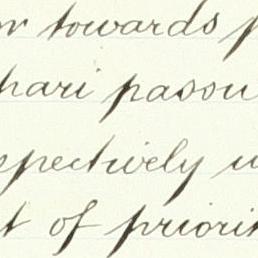 towards
hari pasou
spectively
t of priorit